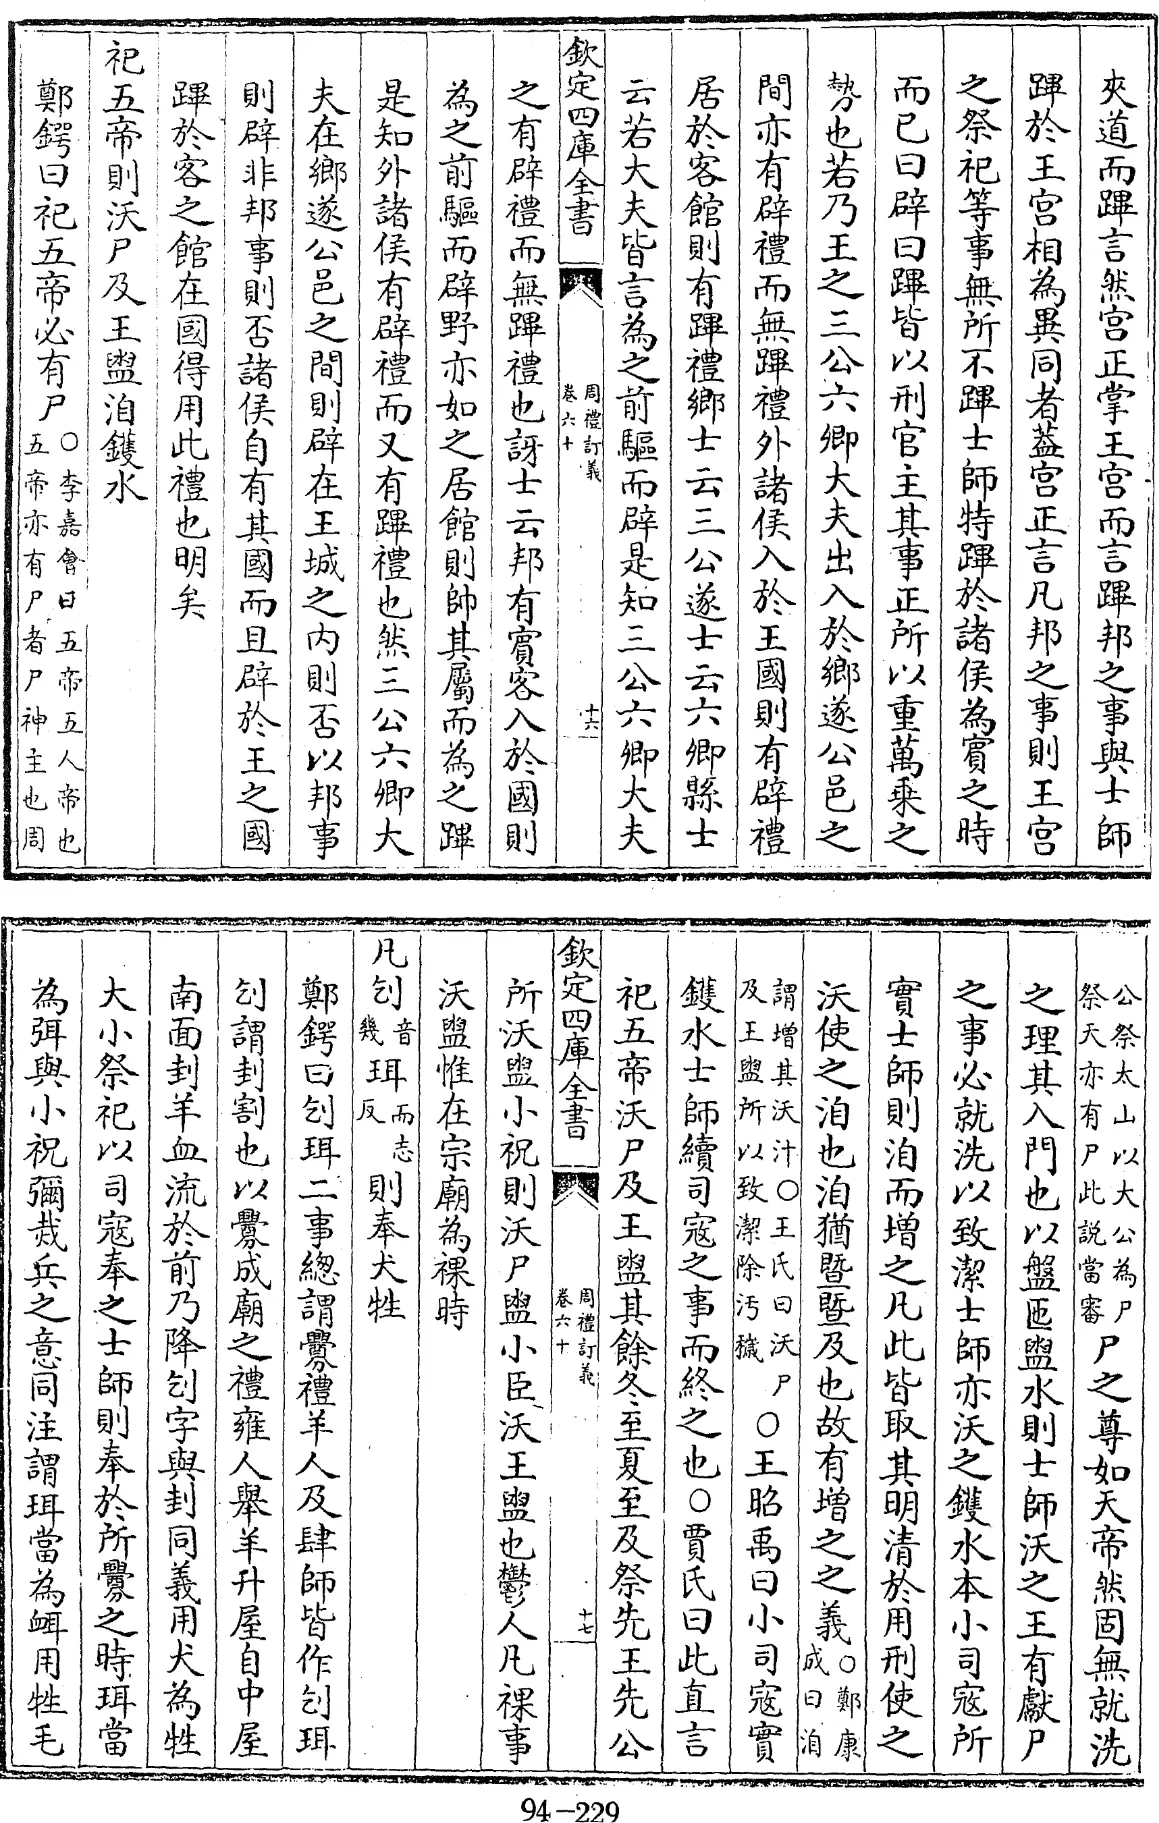 夾道而蹕言然宫正掌王宫而言蹕邦之事與士師
蹕於王宫相為異同者葢宫正言凡邦之事則王宫
之祭祀等事無所不蹕士師特蹕於諸侯為賓之時
而已曰辟曰蹕皆以刑官主其事正所以重萬乗之
勢也若乃王之三公六卿大夫出入於鄉遂公邑之
間亦有辟禮而無蹕禮外諸侯入於王國則有辟禮
居於客館則有蹕禮鄉士云三公遂士云六卿縣士
云若大夫皆言為之前驅而辟是知三公六卿大夫
欽定四庫全書 周禮訂義 卷六十 十六
之有辟禮而無蹕禮也訝士云邦有賓客入於國則
為之前驅而辟野亦如之居館則帥其屬而為之蹕
是知外諸侯有辟禮而又有蹕禮也然三公六卿大
夫在鄉遂公邑之間則辟在王城之内則否以邦事
則辟非邦事則否諸侯自有其國而且辟於王之國
蹕於客之館在國得用此禮也明矣
祀五帝則沃尸及王盥洎鑊水
鄭鍔曰祀五帝必有尸○李嘉會曰五帝五人帝也五帝亦有尸者尸神主也周
公祭太山以大公為尸祭天亦有尸此説當審尸之尊如天帝然固無就洗
之理其入門也以盤匜盥水則士師沃之王有獻尸
之事必就洗以致潔士師亦沃之鑊水本小司寇所
實士師則洎而增之凡此皆取其明清於用刑使之
沃使之洎也洎猶暨暨及也故有增之之義○鄭康成曰洎
謂增其沃汁○王氏曰沃尸及王盥所以致潔除汚穢○王昭禹曰小司寇實
鑊水士師續司寇之事而終之也○賈氏曰此直言
祀五帝沃尸及王盥其餘冬至夏至及祭先王先公
欽定四庫全書 周禮訂義 卷六十 十七
所沃盥小祝則沃尸盥小臣沃王盥也鬱人凡祼事
沃盥惟在宗廟為祼時
凡刉音幾珥而志反則奉犬牲
鄭鍔曰刉珥二事總謂釁禮羊人及肆師皆作刉珥
刉謂刲割也以釁成廟之禮雍人舉羊升屋自中屋
南面刲羊血流於前乃降刉字與刲同義用犬為牲
大小祭祀以司寇奉之士師則奉於所釁之時珥當
為弭與小祝彌烖兵之意同注謂珥當為衈用牲毛
94-229